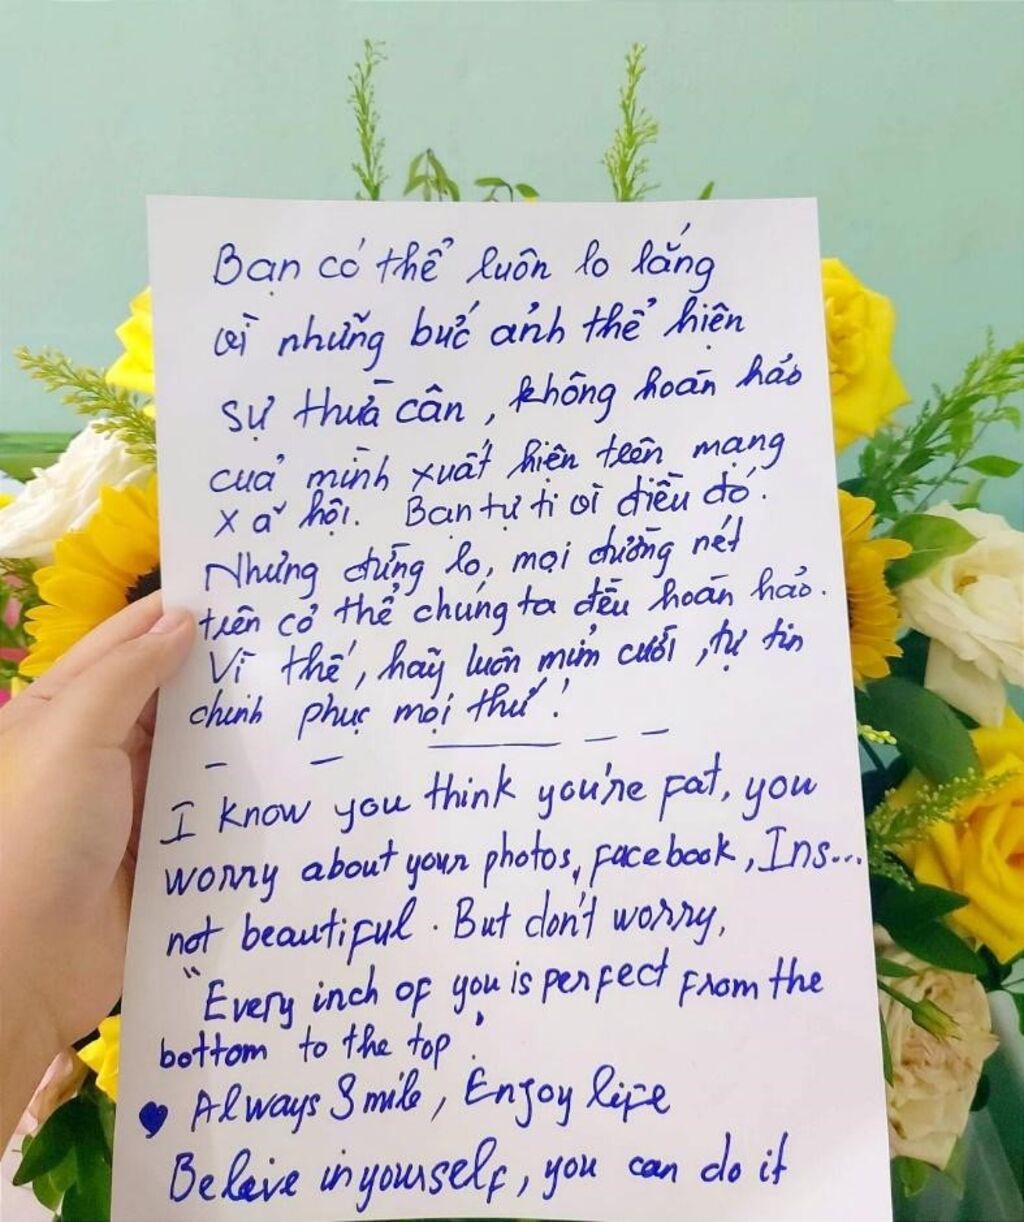 Bạn có thể luôn lo lắng
vì những bức ảnh thể hiện
sự thừa cân, không hoàn hảo
của mình xuất hiện trên mạng
xã hội. Bạn tự ti vì điều đó.
Nhưng đừng lo, mọi đường nét
trên cơ thể chúng ta đều hoàn hảo.
Vì thế, hãy luôn mỉm cười, tự tin
chinh phục mọi thứ!
I know you think you're fat, you
worry about your photos, facebook, Ins...
not beautiful. But don't worry,
"Every inch of you is perfect from the
bottom to the top".
Always Smile, Enjoy life
Beleive in yourself, you can do it